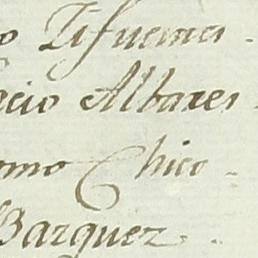 o Zifuenes
cio Albares
omo Chico
Bazquez